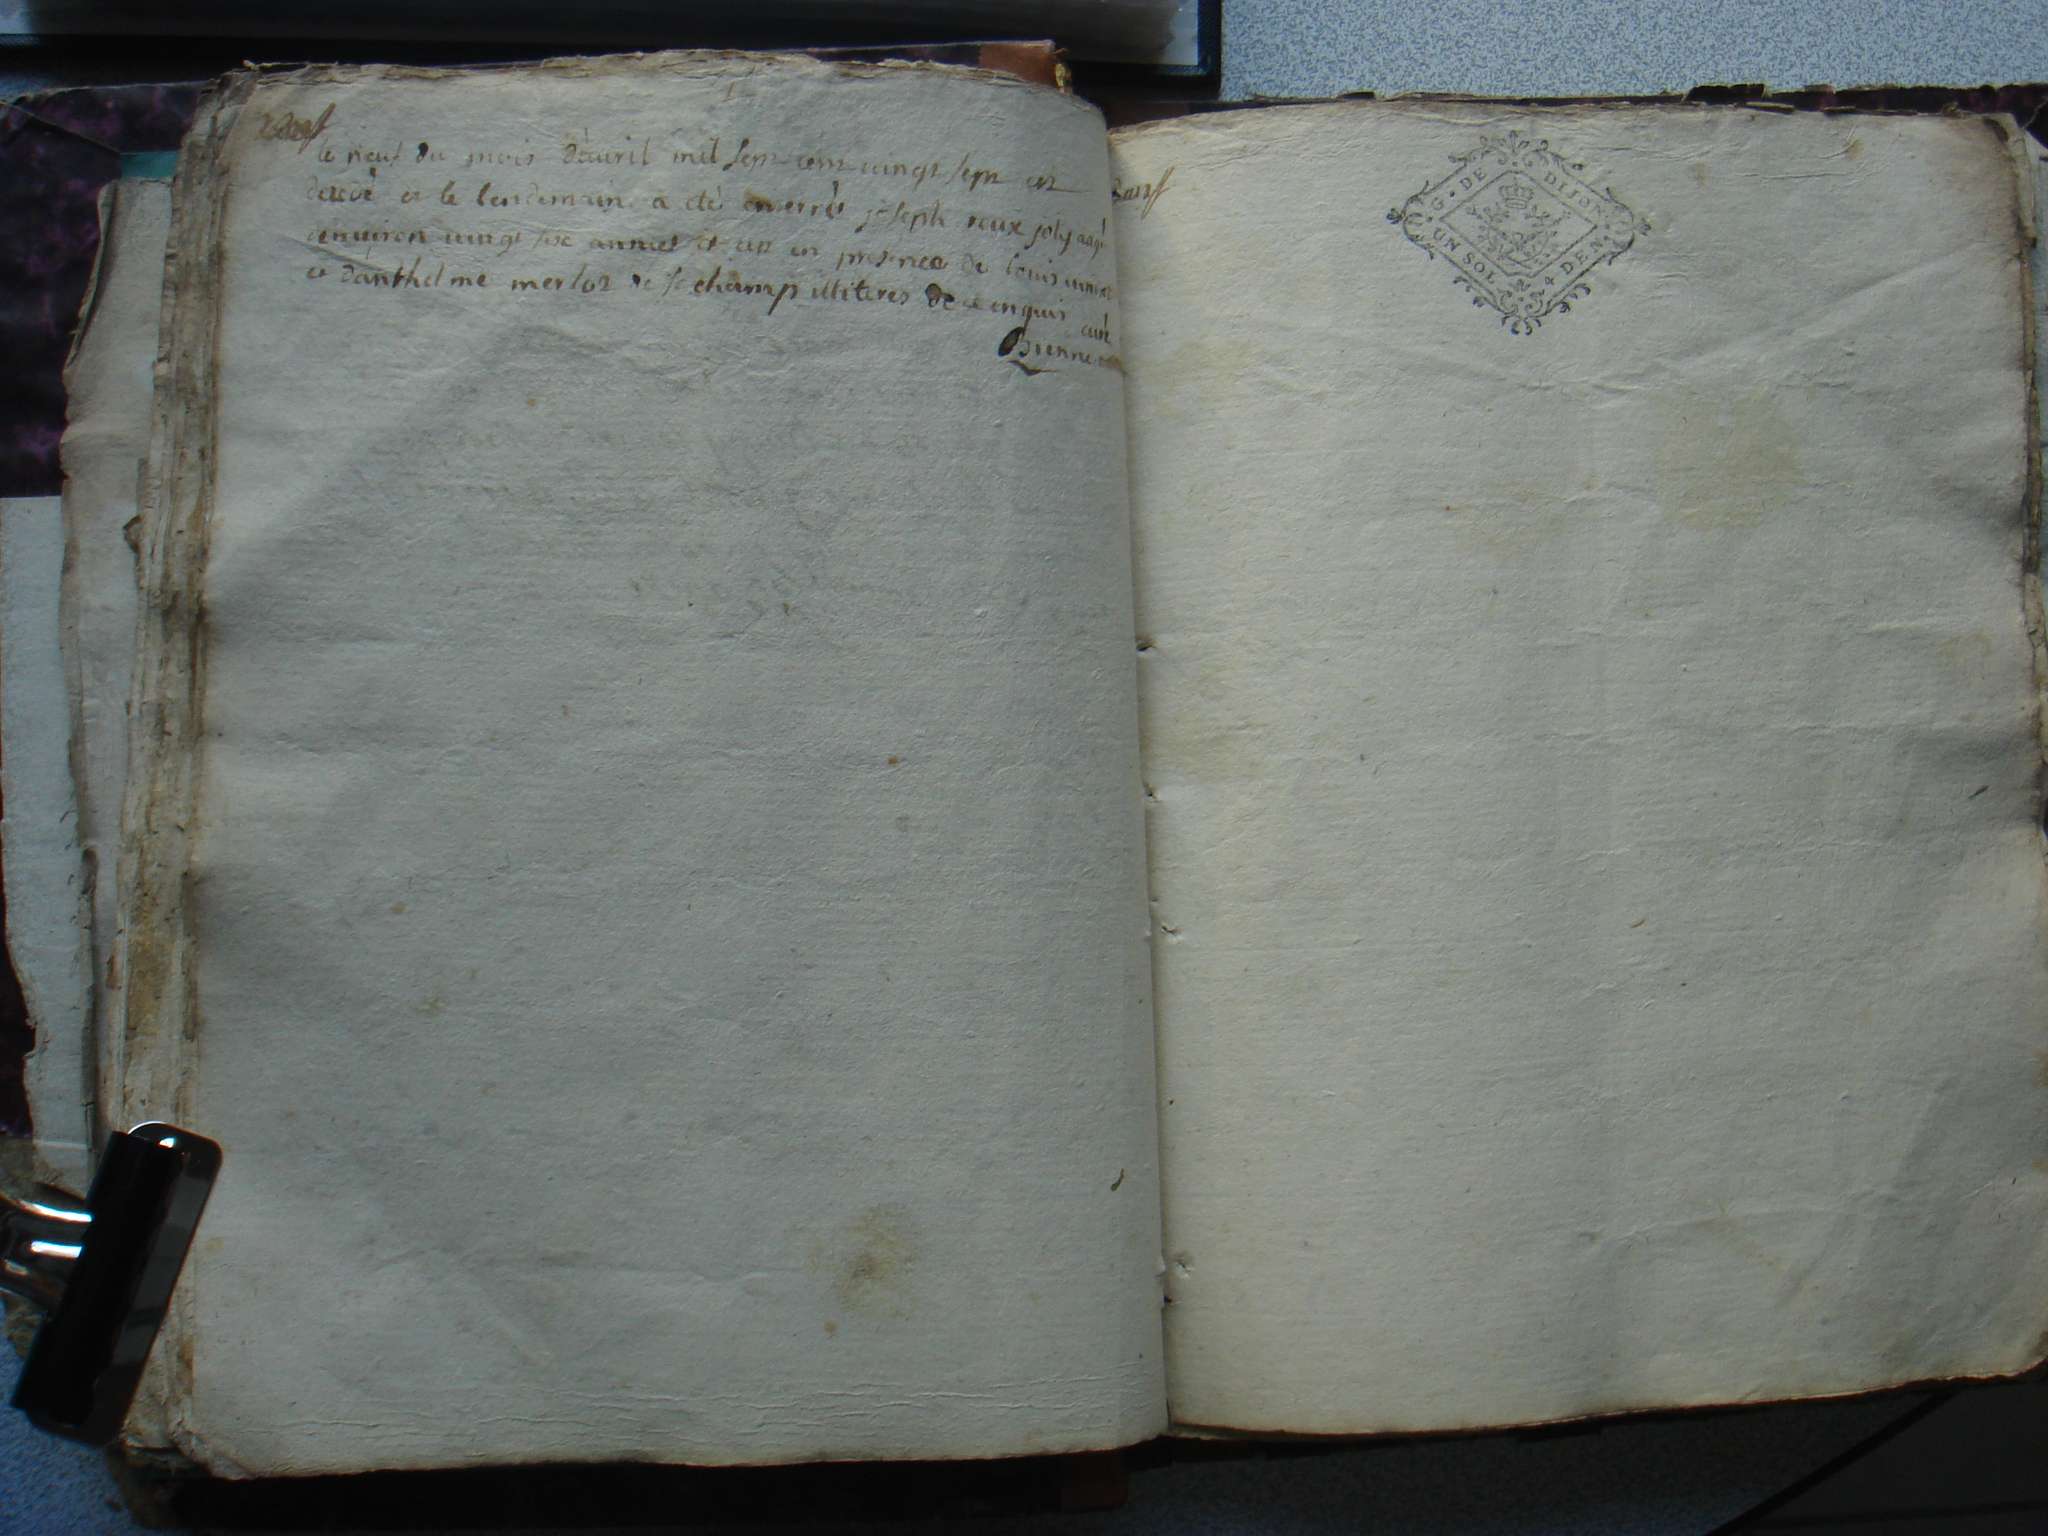 le neuf du mois d'avril mil sept cent vingt sept est
decedé et le lendemain a eté enterré joseph roux joly aagé
denviron vingt six années et en presence de louis
et danthelme merlot de sechamp illiteres de ce enquis
Brenne curé
G. DE DIJON
UN SOL 4 DEN